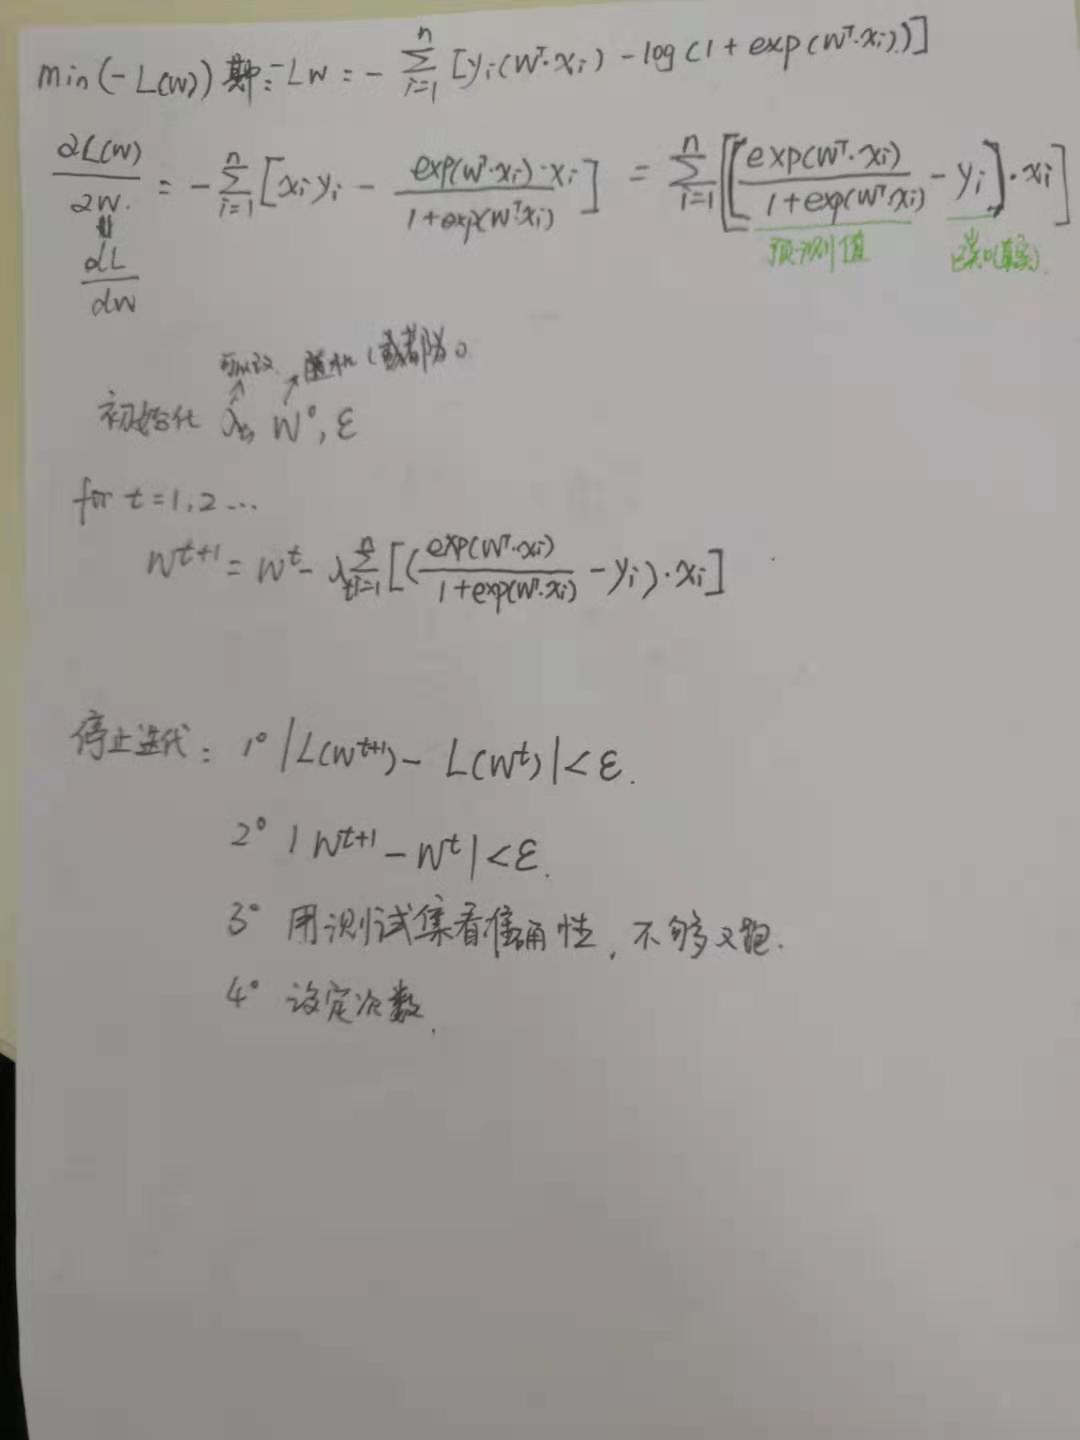 min(-L(w)) 其中: -Lw = - Σ_{i=1}^{n} [y_i(w^T·x_i) - log(1 + exp(w^T·x_i))]
∂L(w)/∂w. = - Σ_{i=1}^{n} [x_i y_i - exp(w^T·x_i)·x_i / 1+exp(w^T x_i)] = Σ_{i=1}^{n} [[exp(w^T·x_i) / 1+exp(w^T·x_i) - y_i]·x_i]
预测值 已知(真实)
⇓
dL/dw
可以设 随机(或者都为0
初始化 λ_t, w^0, ε
for t=1,2...
w^{t+1} = w^t - λ_t Σ_{i=1}^{n} [(exp(w^T·x_i) / 1+exp(w^T·x_i) - y_i)·x_i]
停止迭代: 1° |L(w^{t+1}) - L(w^t)| < ε.
2° |w^{t+1} - w^t| < ε.
3° 用测试集看准确性, 不够又跑.
4° 设定次数.